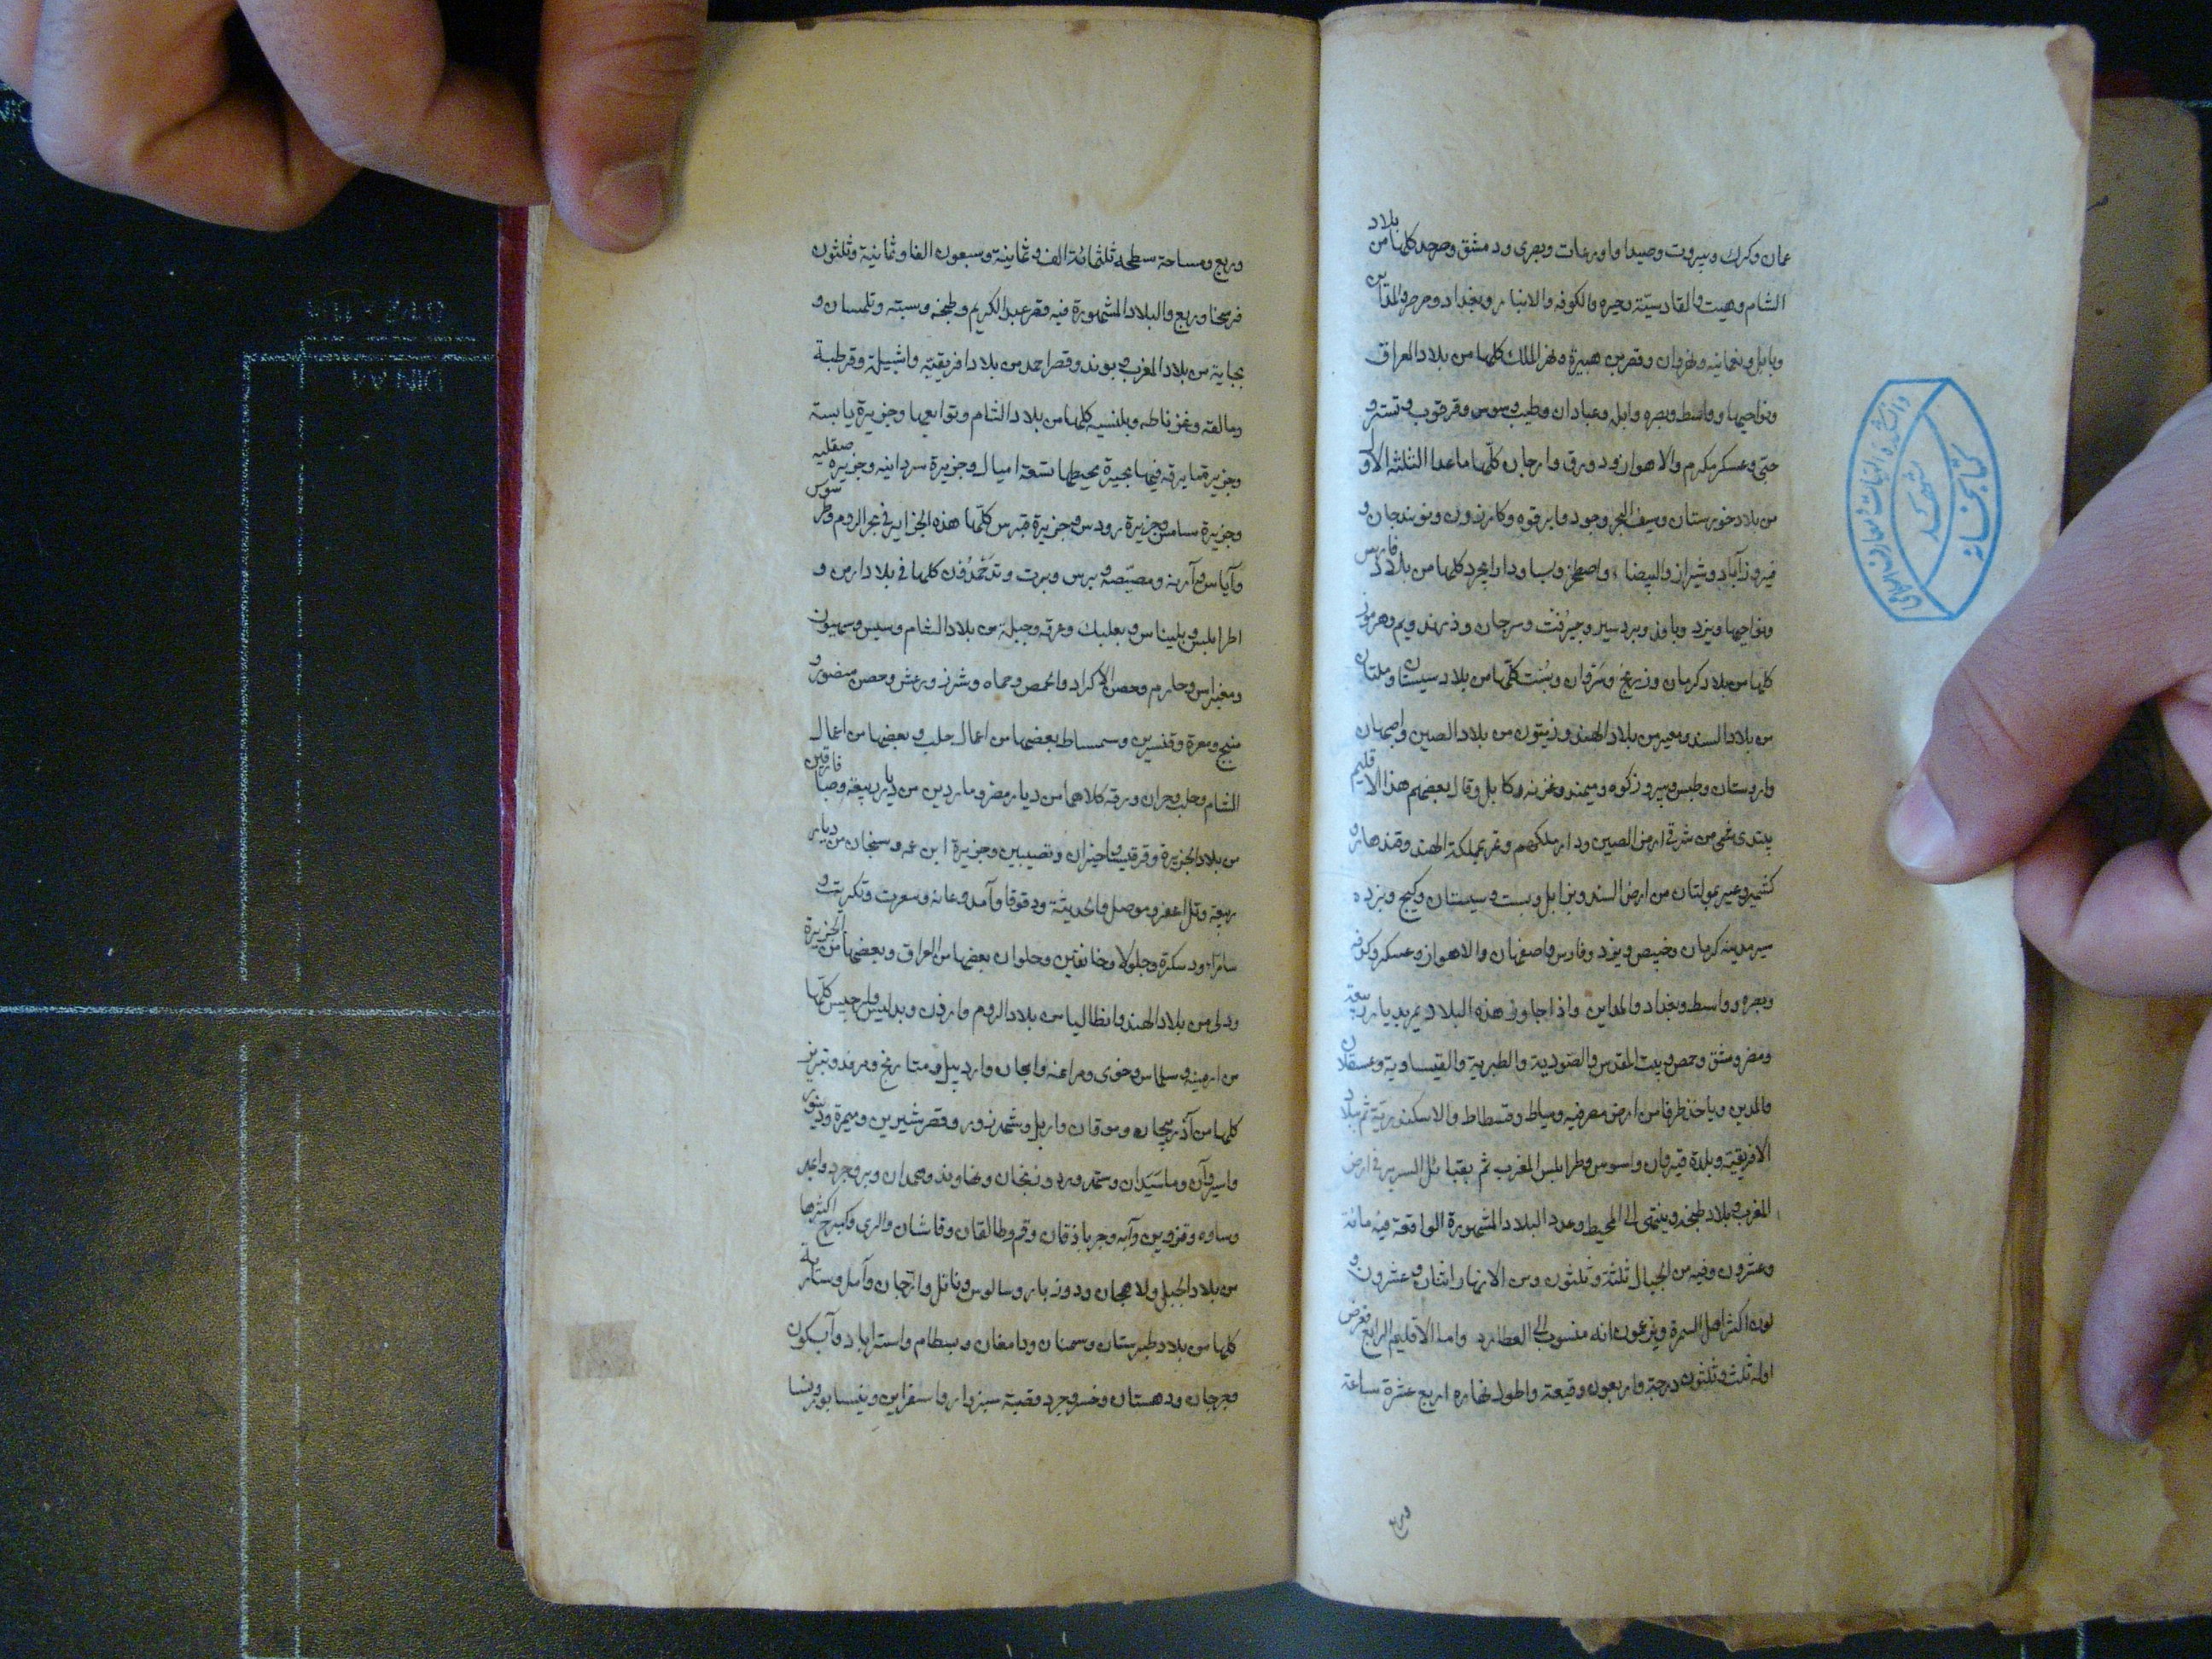 عمان وكرك وبيروت وصيدا واورعات وبصرى ودمشق وصرخد كلها من بلاد
الشام وهيت والقادسيّة وحيره والكوفه والانبار وبغداد و والمداين
وبابل ونعمانيه ونهروان وقصربن هبيرة ونهر الملك كلها من بلاد العراق
ونواحيها وواسط وبصره وابله وعبادان وطيب وسوس وقرقوب وتستر و
جبّى وعسكر مكرم والاهواز ودورق وارجان كلّها ماعدا الثلثة الاول
من بلاد خوزستان وسيف البحر وجود وابرقوه وكازرون ونوبندجان و
فيروزآباد وشيراز والبيضاء واصطخر وبسا ودارابجرد كلها من بلاد فارس
ونواحيها ويزد وبافد وبردسير وجيرفت وسرجان وزرند وبم وهرموز
كلها من بلاد كرمان وزرنج وشروان وبُست كلّها من بلاد سيستان وملتان
من بلاد السند من بلاد الهند وزيتون من بلاد الصين واصبهان
واروستان وطبس وپيروزكوه وميمند وغزنه وكابل وقال بعضهم هذا الاقليم
يبتدى من شرقى ارض الصين ودار ملكهم وتمر بمملكة الهند وقندهار و
كشمير وعبر بمولتان من ارض السند وبزابل وبست وسيستان وكيج وبزده
سير مدينه كرمان وخبيص ويزد وفارس واصفهان والاهواز وعسكر وكوفه
وبصره وواسط وبغداد والمداين واذا جاوز هذه البلاد يمر بديار ربيعة
ومضر ومشق وحمص وبيت المقدس والصّورية والطبرية والقيساوية وعسقلان
والمدين وياخذ طرفا من ارض مصر فيه دمياط وفسطاط والاسكندريّة ثم ببلاد
الافريقيّة وبلدة قيروان واسوس وطرابلس المغرب ثم بقبائل البربر فى ارض
المغرب وببلاد طنجه وينتهى الى المحيط وعدد البلاد المشهورة الواقعة فيه مائة
وعشرون وفيه من الجبال ثلثة وثلثون ومن الانهار اثنان وعشرون و
لون اكثر اهل السمرة ويزعمون انه منسوب الى العطارد واما الاقليم الرابع فعرض
اوله ثلث وثلثون درجة واربعون دقيقة واطول نهاره اربع عشرة ساعة
وربع
وربع ومساحة سطحه ثلثمائة الف وثمانية وسبعون الفا وثمانية وثلثون
فرسخا وربع والبلاد المشهورة فيه قصر عبد الكريم وطنجه وسبته وتلمسان و
بجاية من بلاد المغرب وبوند وقصر احمد من بلاد افريقيّه واشبيلة وقرطبة
ومالقه وغرناطه وبلنسيه كلها من بلاد الشام وتوابعها وجزيرة يابسة
وجزيرة مايرقه فيها بحيرة محيطها تسعة اميال وجزيرة سردانيه وجزيره صقليه
وجزيرة سامس وجزيرة رودس وجزيرة قبرس كلّها هذه الجزاير فى بحر الروم وطرسوس
وآياس وآذنه ومصّيصه وبرس وبرت كلها فى بلاد ارمن و
اطرابلس وبليناس وبعلبك وعرقه وجبلة من بلاد الشام وسيس وصهيون
وبغراس وحارم وحصن الاكراد والحمص وحماه وشيزر ومرعش وحصن منصور و
منبج ومعرة وقنسرين وسمساط بعضها من اعمال حلب وبعضها من اعمال
الشام وحلب وحران ورقه كلاهما من ديار مضر وماردين من ديار ربيعة وميافارقين
من بلاد الجزيرة وقرقيسا واخيزان ونصيبين وجزيرة ابن عمه وسنجان من ديار
ربيعة وتل اعفر وموصل والحديثة ودقوقا وآمد وعانه وسعرت وتكريت و
سامرّا ودسكرة وجلولا وخانقين وحلوان بعضها من العراق وبعضها من الجزيرة
ودلى من بلاد الهند وانطاليا من بلاد الروم وارزن وبدليس وارجيس كلّها
من ارمينه وسلماس وخوى ومراغه واوجان واردبيل وميانج ومرند وتبريز
كلها من آذربيجان وموقان واربل وشهرزور وقصر شيرين وصيمرة ودينور
واسيروآن وماسَبَدان وسهرورد وزنجان ونهاوند وهمدان وبروجرد وابهر
وساوه وقزوين وآبه وجرباذقان وقم وطالقان وقاشان والرى وكرج اكثرها
من بلاد الجبل ولاهجان ودوزبار وسالوس وناتل وارجان وآمل وسارية
كلها من بلاد طبرستان وسمنان ودامغان وبسطام واستراباد وآبسكون
وجرجان ودهستان وخسروجرد وقصبة سبزوار واسفراين ونيسابور ونسا
كتابخانه
دانشكدهٔ الهيات و معارف اسلامى
مشهد